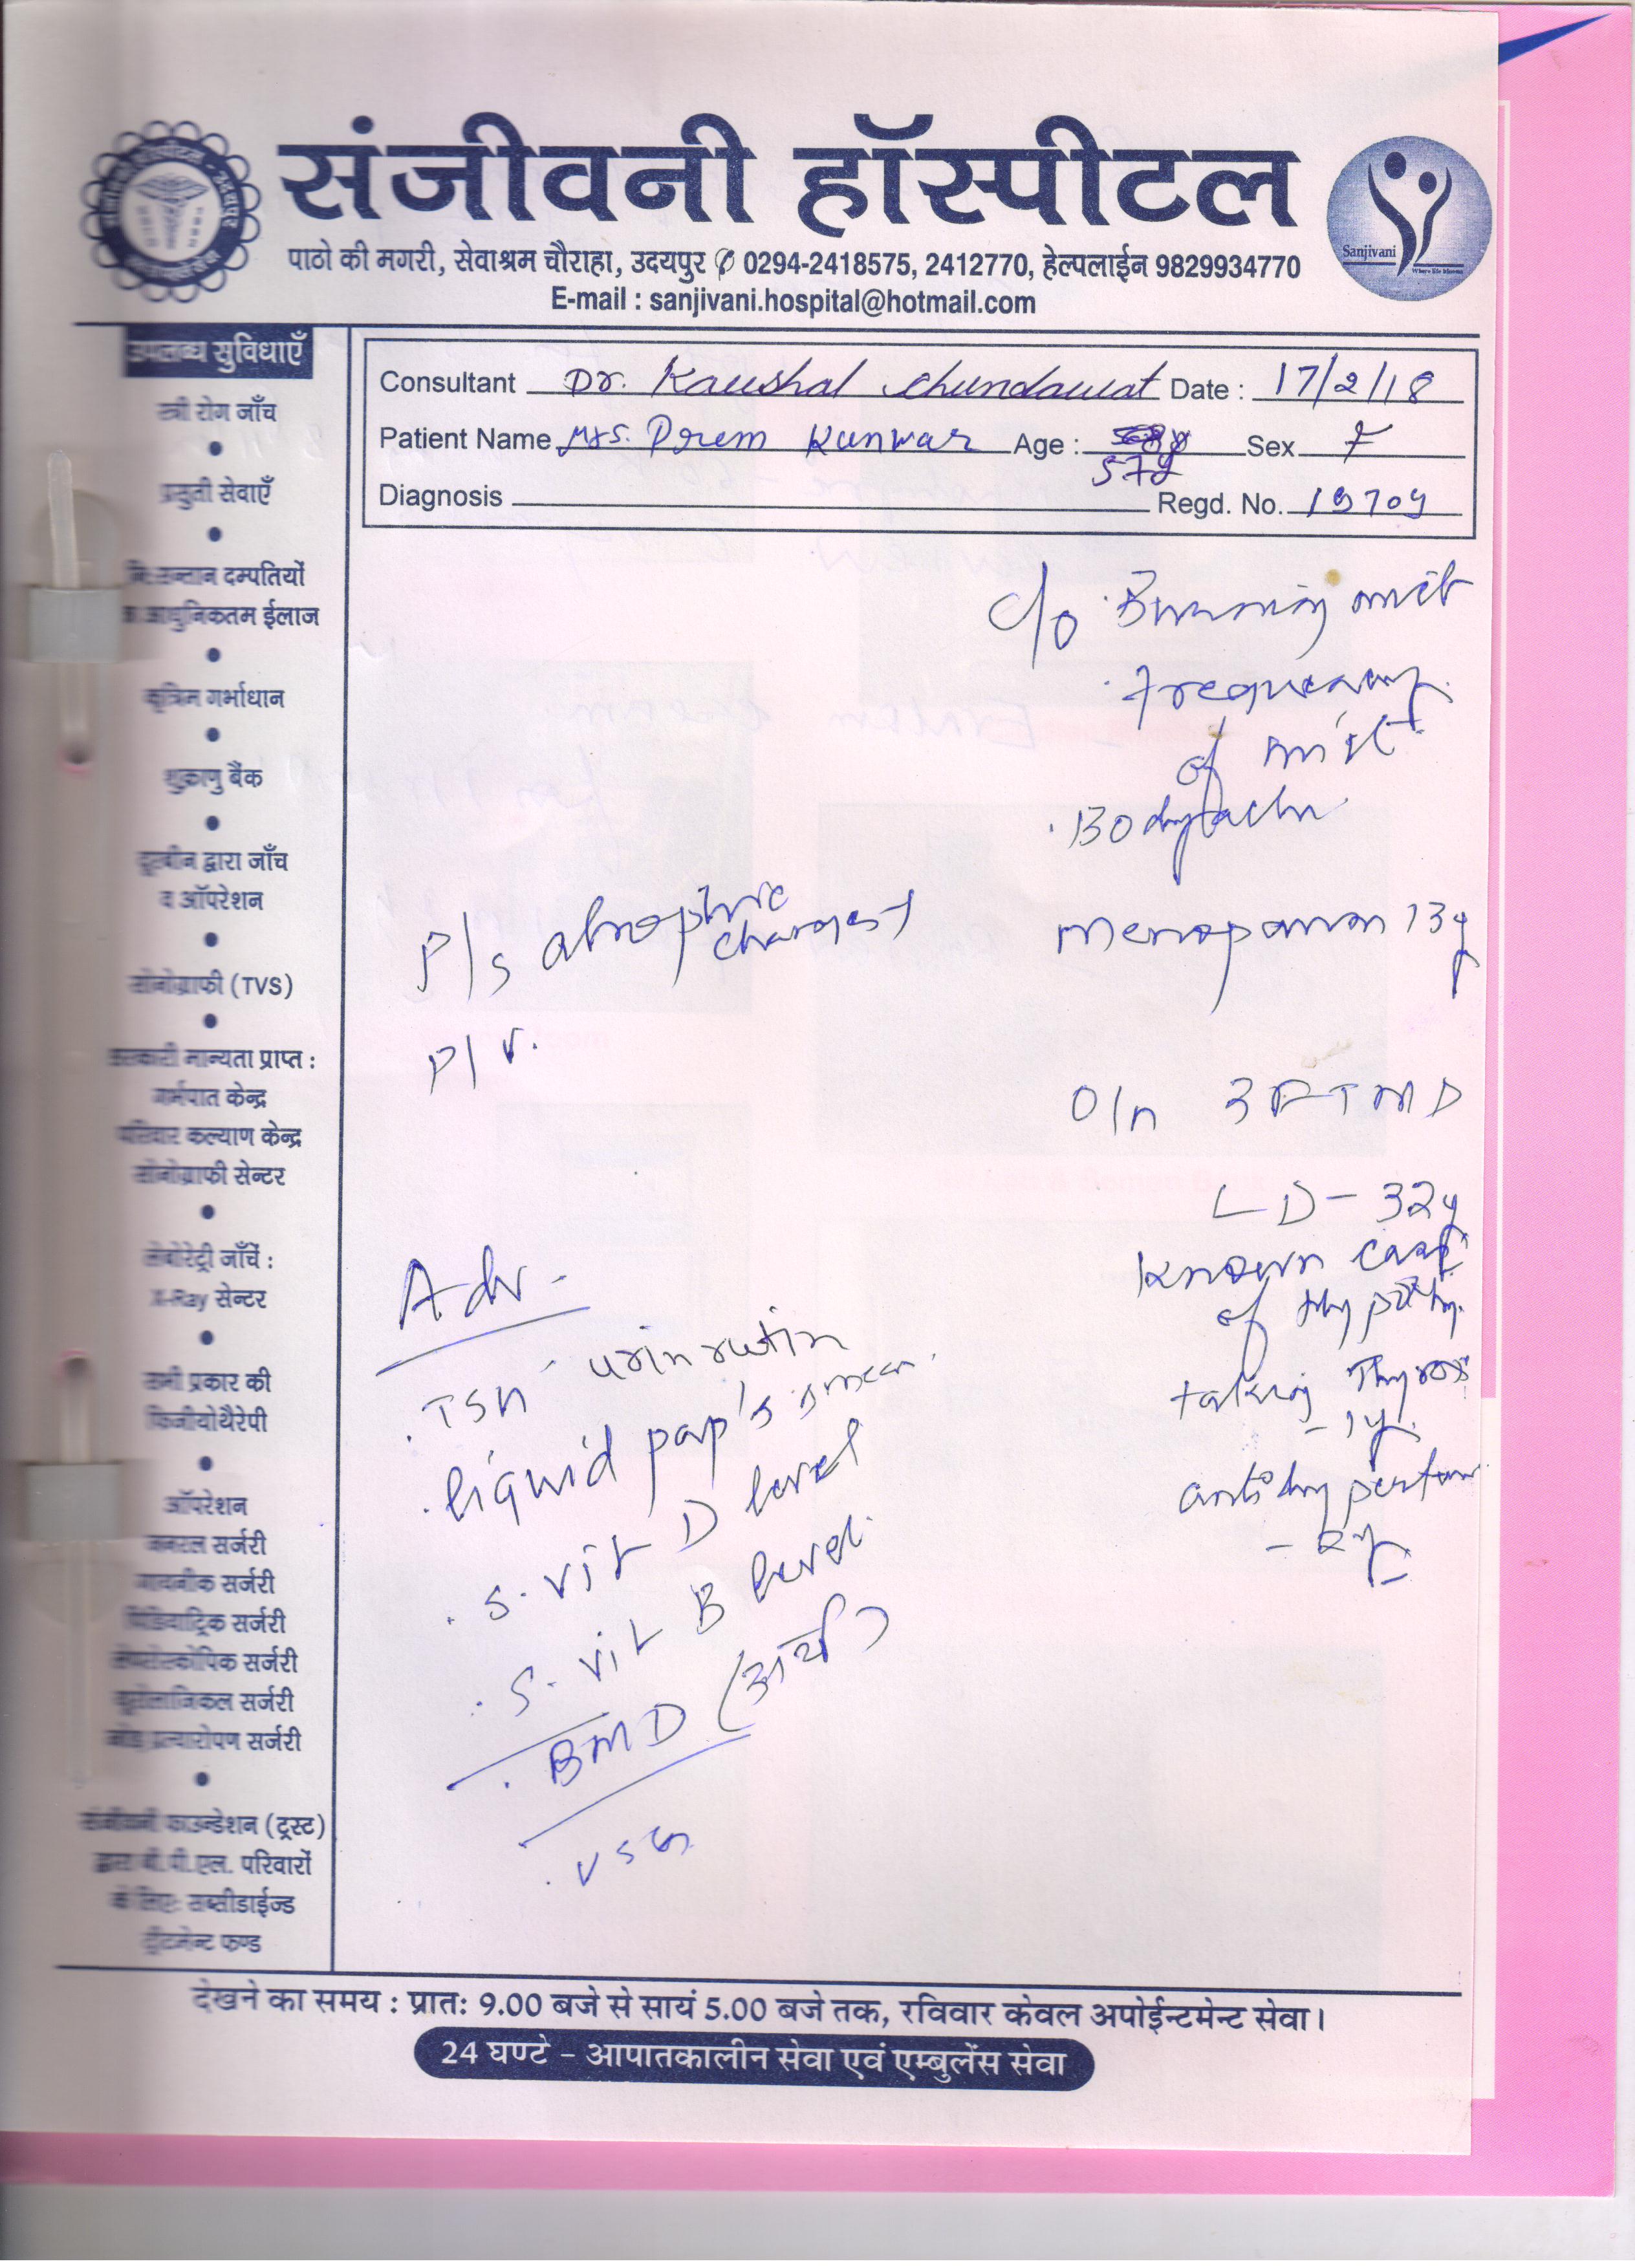 संजीवनी हॉस्पीटल
पाठो की मगरी, सेवाश्रम चौराहा, उदयपुर ✆ 0294-2418575, 2412770, हेल्पलाईन 9829934770
E-mail : sanjivani.hospital@hotmail.com
Sanjivani
उपलब्ध सुविधाएँ
स्त्री रोग जाँच
प्रसुती सेवाएँ
नि:सन्तान दम्पतियों
का आधुनिकतम ईलाज
कृत्रिम गर्भाधान
शुक्राणु बैंक
दूरबीन द्वारा जाँच
व ऑपरेशन
सोनोग्राफी (TVS)
सरकारी मान्यता प्राप्त :
गर्भपात केन्द्र
परिवार कल्याण केन्द्र
सोनोग्राफी सेन्टर
लेबोरेट्री जाँचें :
X-Ray सेन्टर
सभी प्रकार की
फिजीयोथैरेपी
ऑपरेशन
जनरल सर्जरी
गायनीक सर्जरी
पिडियाट्रिक सर्जरी
लेपरोस्कोपिक सर्जरी
यूरोलाजिकल सर्जरी
जोड़ प्रत्यारोपण सर्जरी
संजीवनी फाउन्डेशन (ट्रस्ट)
द्वारा बी.पी.एल. परिवारों
के लिए: सब्सीडाईज्ड
ट्रीटमेन्ट फण्ड
Consultant Dr. Kaushal Chundawat Date : 17/2/18
Patient Name Mrs. Prem Kunwar Age : 57y Sex F
Diagnosis Regd. No. 19709
c/o · Burning mict
· Frequency
of mict
· Bodyache
P/s atrophic
changes
Menopause 13y
P/V.
O/h 3FTND
LD - 32y
Known case
of
taking Thyrox
- 1y
- 2y
Adv -
· TSH - urin rutin
· liquid pap's smear
· S. vit D level
· S. vit B level
· BMD (अर्थ)
· USG
देखने का समय : प्रात: 9.00 बजे से सायं 5.00 बजे तक, रविवार केवल अपोईन्टमेन्ट सेवा।
24 घण्टे - आपातकालीन सेवा एवं एम्बुलेंस सेवा